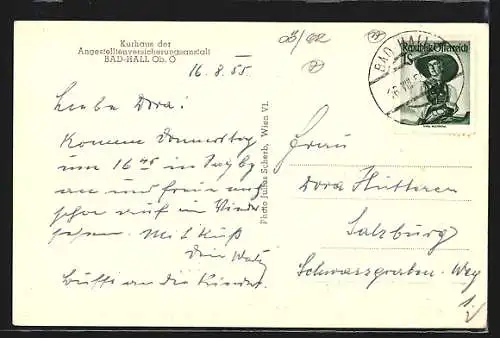 Kurhaus der
Angestelltenversicherungsanstalt
BAD-HALL Ob. Ö
16.8.55
Liebe Dora!
Komme Donnerstag
um 16 45 in Szbg
an und freue mich
schon auf ein Wieder
sehen. Mit Kuß
Dein
Bussi an die Kinder.
Photo Julius Scherb, Wien VI.
BAD HALL
Republik Österreich
1S
Frau
Dora Hütterer
Salzburg
Schwarzgraben-Weg